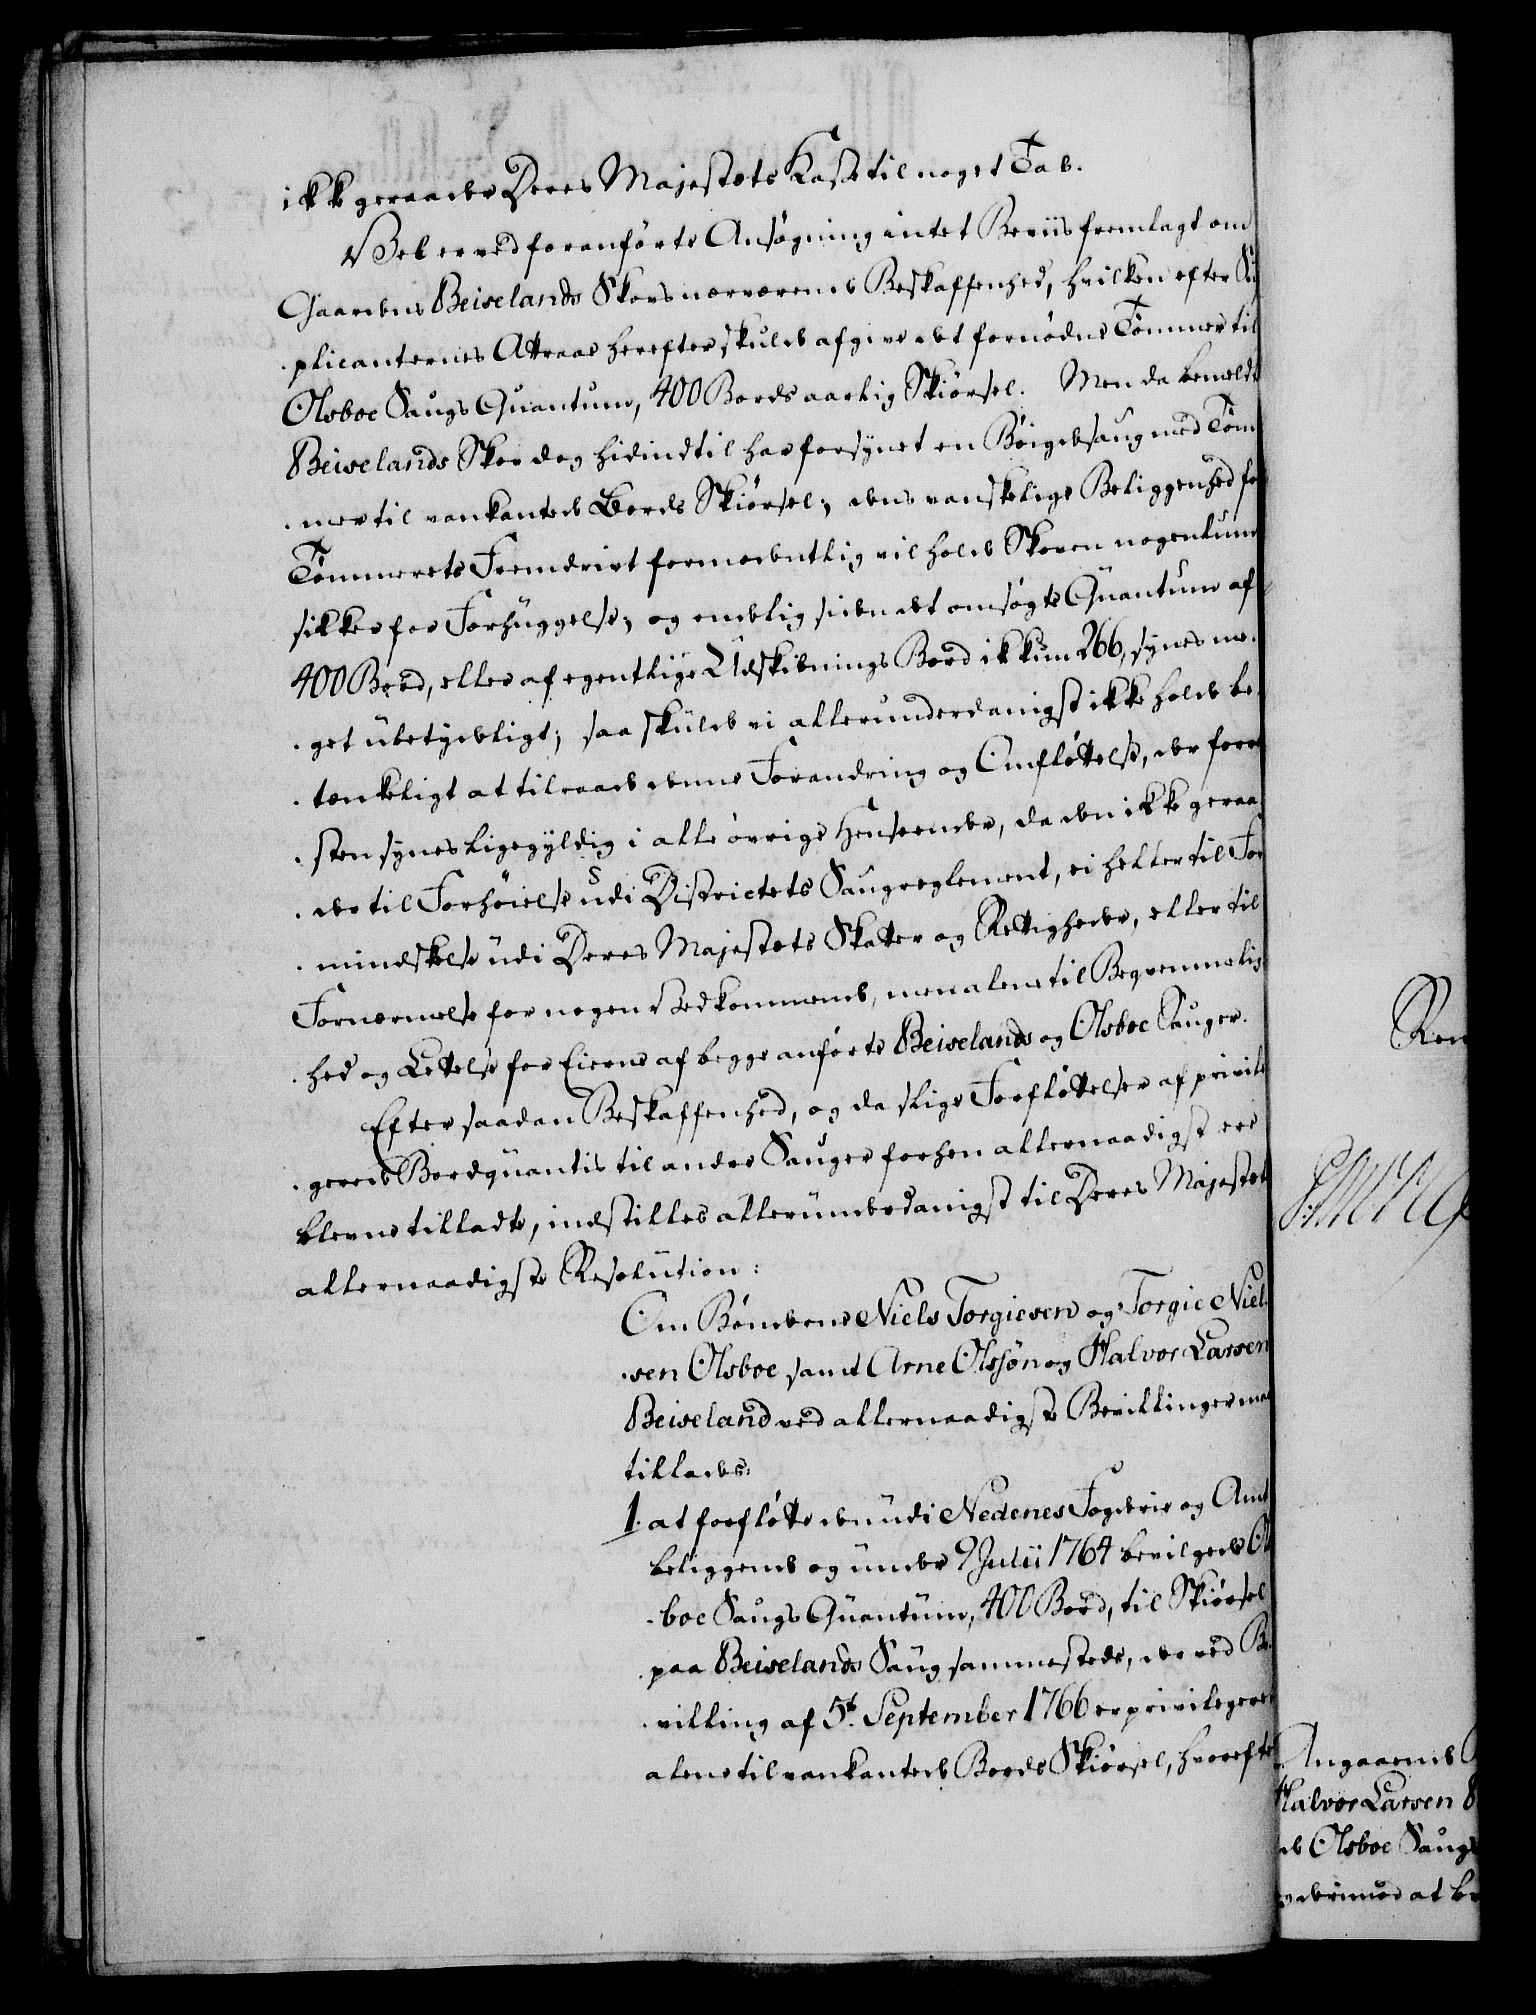 ikke geraade Deres Majestæts Kasse til noget Tab.
Vel er ved foranførte Ansøgning intet Beviis fremlagt om
Gaardens Beiselands Skovs nærværende Beskaffenhed, hvilken efter Sup
plicanternes Attraae herefter skulde afgive det fornødne Tømmer til
Olsboe Saugs Quantum, 400 Bords aarlig Skiørsel. Men da bemeldte
Beiselands Skov dog hidindtil har forsynet en Bøigdesaug med Tøm
mer til vankantede Bords Skiørsel; dens vanskelige Beliggenhed for
Tømmerets Fremdrivt formodentlig vil holde Skoven nogenlunde
sikker for Forhuggelse; og endelig siden det omsøgte Quantum af
400 Bord, eller af egentlige Udskibnings Bord ikkun 266, synes me-
get ubetydeligt; saa skulde vi allerunderdanigst ikke holde be-
tænkeligt at tilraade denne Forandring og Omfløttelse, der for re
sten synes ligegyldig i alle øvrige Henseender, da den ikke geraa
der til Forhøielse udi Districtets Saugreglement, ei heller til For
mindskelse udi Deres Majestæts Skatter og Rettigheder, eller til
Fornærmelse for nogen Vedkommende, men alene til Beqvemmelig-
hed og Lettelse for Eierne af begge anførte Beiselands og Olsboe Sauger.
Efter saadan Beskaffenhed, og da slige Forfløttelser af privile
gerede Bordquantis til andre Sauger forhen allernaadigst ere
blevne tilladte, indstilles allerunderdanigst til Deres Majestæts
allernaadigste Resolution:
Om Bønderne Niels Torgiesen og Torgie Niel
sen Olsboe samt Arne Olssøn og Halvor Larsen
Beiseland ved allernaadigste Bevillinger maa
tillades:
1. at forfløtte den udi Nedenes Fogderie og Amt
beliggende og under 9 Julii 1764 bevilgede Ols
boe Saugs Quantum, 400 Bord, til Skiørsel
paa Beiselands Saug sammesteds, der ved Be
villing af 5t. September 1766 er privilegeret
alene til vankantede Bords Skiørsel, hvorefter
Ren
Angaaende
Halvor Larsen
de Olsboe Saugs
derimod at be